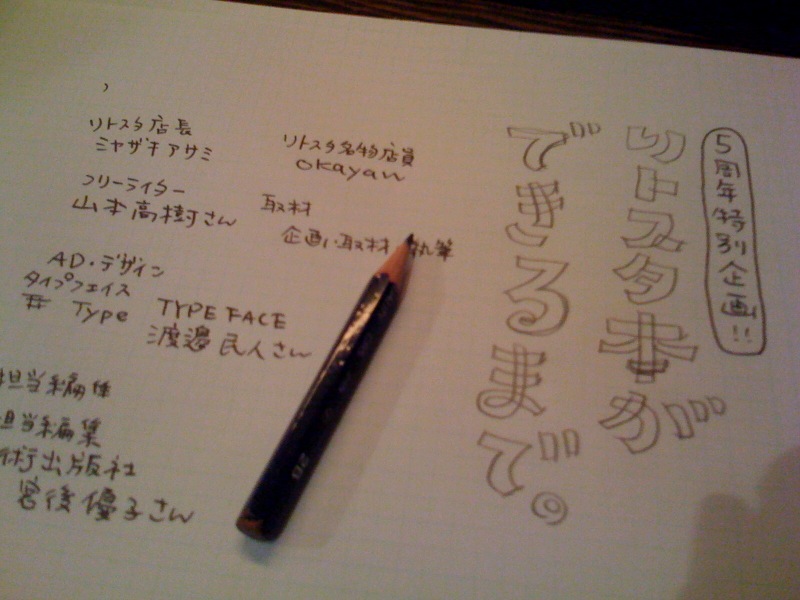 5周年特別企画!!
リトスタ本が
できるまで。
リトスタ店長
ミヤザキアサミ
リトスタ名物店員
okayan
フリーライター
山本高樹さん
取材
企画・取材 執筆
AD・デザイン
タイプフェイス
Type TYPE FACE
渡邉民人さん
担当編集
担当編集
術出版社
宮後優子さん
2B